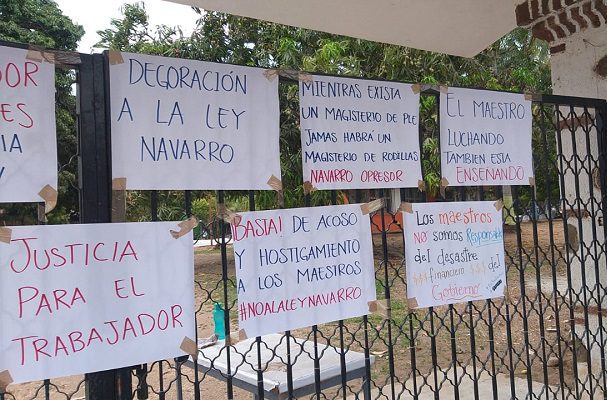 DOR
ES
IA
DEGORACIÓN
A LA LEY
NAVARRO
MIENTRAS EXISTA
UN MAGISTERIO DE PIE
JAMAS HABRÁ UN
MAGISTERIO DE RODILLAS
NAVARRO OPRESOR
EL MAESTRO
LUCHANDO
TAMBIEN ESTA
ENSEÑANDO
JUSTICIA
PARA EL
TRABAJADOR
¡BASTA! DE ACOSO
Y HOSTIGAMIENTO
A LOS MAESTROS
#NOALALEYNAVARRO
Los maestros
NO somos Responsable
del desastre
financiero $$$ del
Gobierno